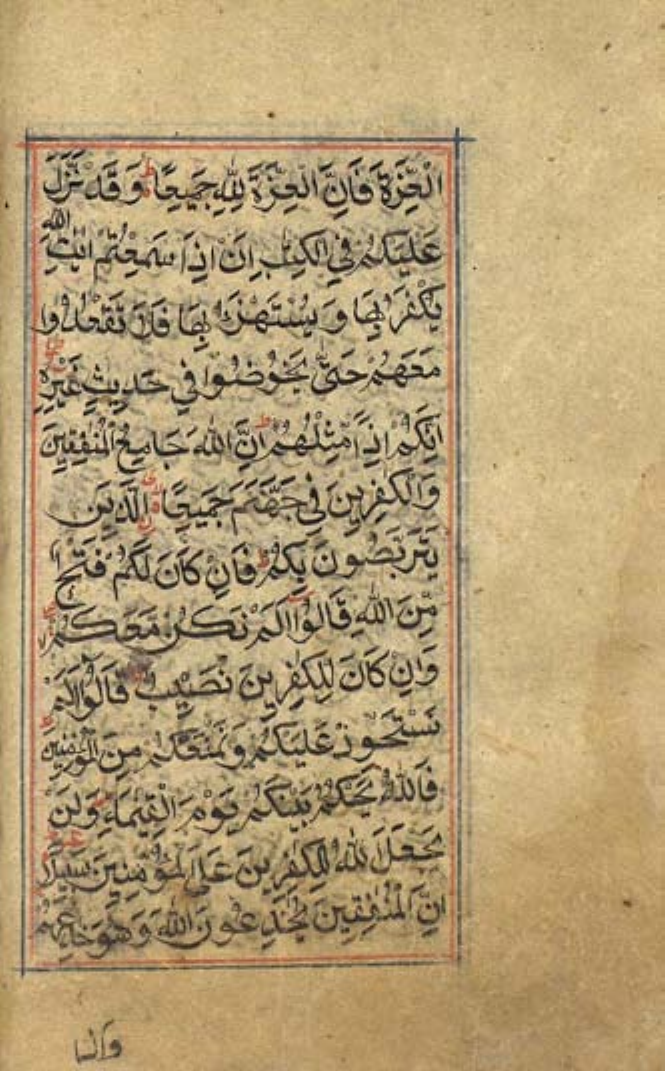 الْعِزَّةَ فَاِنَّ الْعِزَّةَ لِلّٰهِ جَمِيْعًا ط وَ قَدْ نَزَّلَ
عَلَيْكُمْ فِي الْكِتٰبِ اِنْ اِذَا سَمِعْتُمْ اٰيٰتِ اللّٰهِ
يُكْفَرُ بِهَا وَ يُسْتَهْزَاُ بِهَا فَلَا تَقْعُدُوْا
مَعَهُمْ حَتّٰى يَخُوْضُوْا فِيْ حَدِيْثٍ غَيْرِهٖ
اِنَّكُمْ اِذًا مِّثْلُهُمْ ط اِنَّ اللّٰهَ جَامِعُ الْمُنٰفِقِيْنَ
وَالْكٰفِرِيْنَ فِيْ جَهَنَّمَ جَمِيْعًا الَّذِيْنَ
يَتَرَبَّصُوْنَ بِكُمْ فَاِنْ كَانَ لَكُمْ فَتْحٌ
مِّنَ اللّٰهِ قَالُوْا اَلَمْ نَكُنْ مَّعَكُمْ
وَاِنْ كَانَ لِلْكٰفِرِيْنَ نَصِيْبٌ قَالُوْا اَلَمْ
نَسْتَحْوِذْ عَلَيْكُمْ وَنَمْنَعْكُمْ مِنَ الْمُؤْمِنِيْنَ
فَاللّٰهُ يَحْكُمُ بَيْنَكُمْ يَوْمَ الْقِيٰمَةِ وَلَنْ
يَجْعَلَ اللّٰهُ لِلْكٰفِرِيْنَ عَلَى الْمُؤْمِنِيْنَ سَبِيْلًا
اِنَّ الْمُنٰفِقِيْنَ يُخٰدِعُوْنَ اللّٰهَ وَهُوَ خَادِعُهُمْ